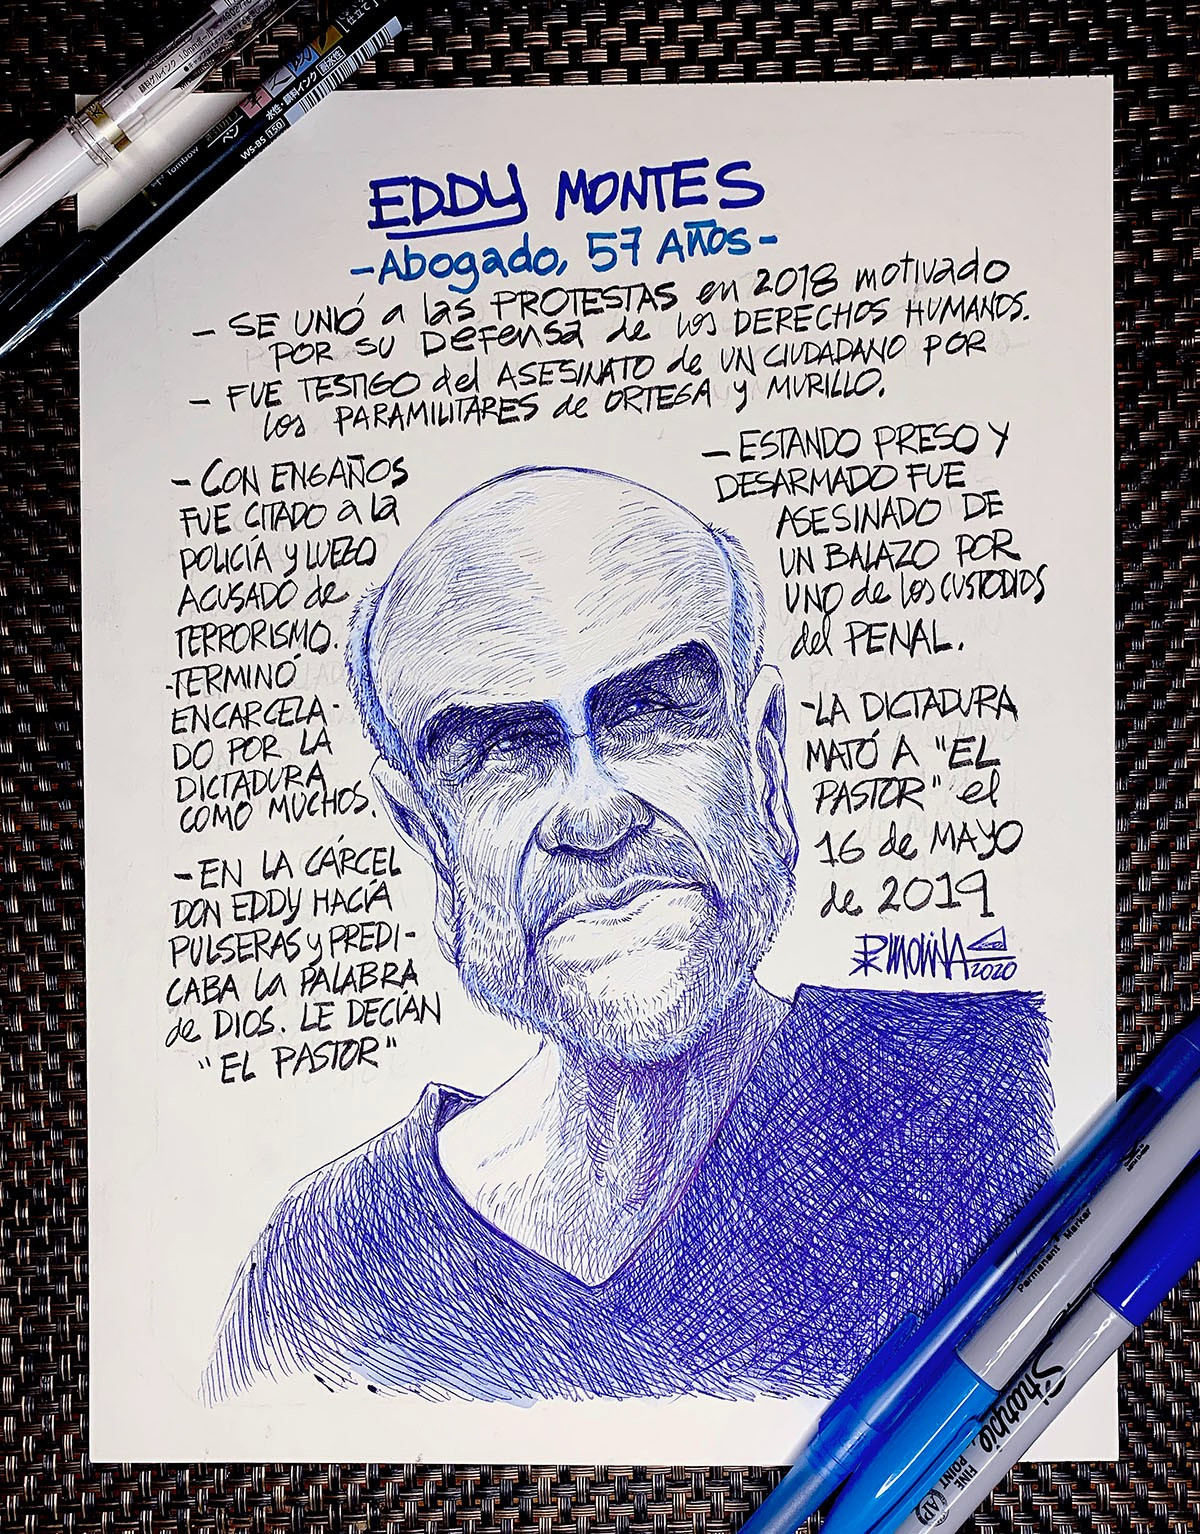 EDDY MONTES
-Abogado, 57 AÑOS-
- SE UNIÓ a las PROTESTAS en 2018 motivado
POR SU DEFENSA de los DERECHOS HUMANOS.
- FUE TESTIGO del ASESINATO de UN CIUDADANO POR
los PARAMILITARES de ORTEGA y MURILLO.
- CON ENGAÑOS
FUE CITADO a la
POLICÍA y LUEGO
ACUSADO de
TERRORISMO.
-TERMINÓ
ENCARCELA-
DO POR LA
DICTADURA
COMO MUCHOS.
-EN LA CÁRCEL
DON EDDY HACÍA
PULSERAS y PREDI-
CABA la PALABRA
de DIOS. LE DECÍAN
"EL PASTOR"
- ESTANDO PRESO Y
DESARMADO FUE
ASESINADO DE
UN BALAZO POR
UNO de los CUSTODIOS
del PENAL.
-LA DICTADURA
MATÓ A "EL
PASTOR" el
16 de MAYO
de 2019
PXMOLINA
2020
Tombow
WS-BS 150
水性・顔料インク
Permanent Marker
Sharpie
FINE
POINT
AP